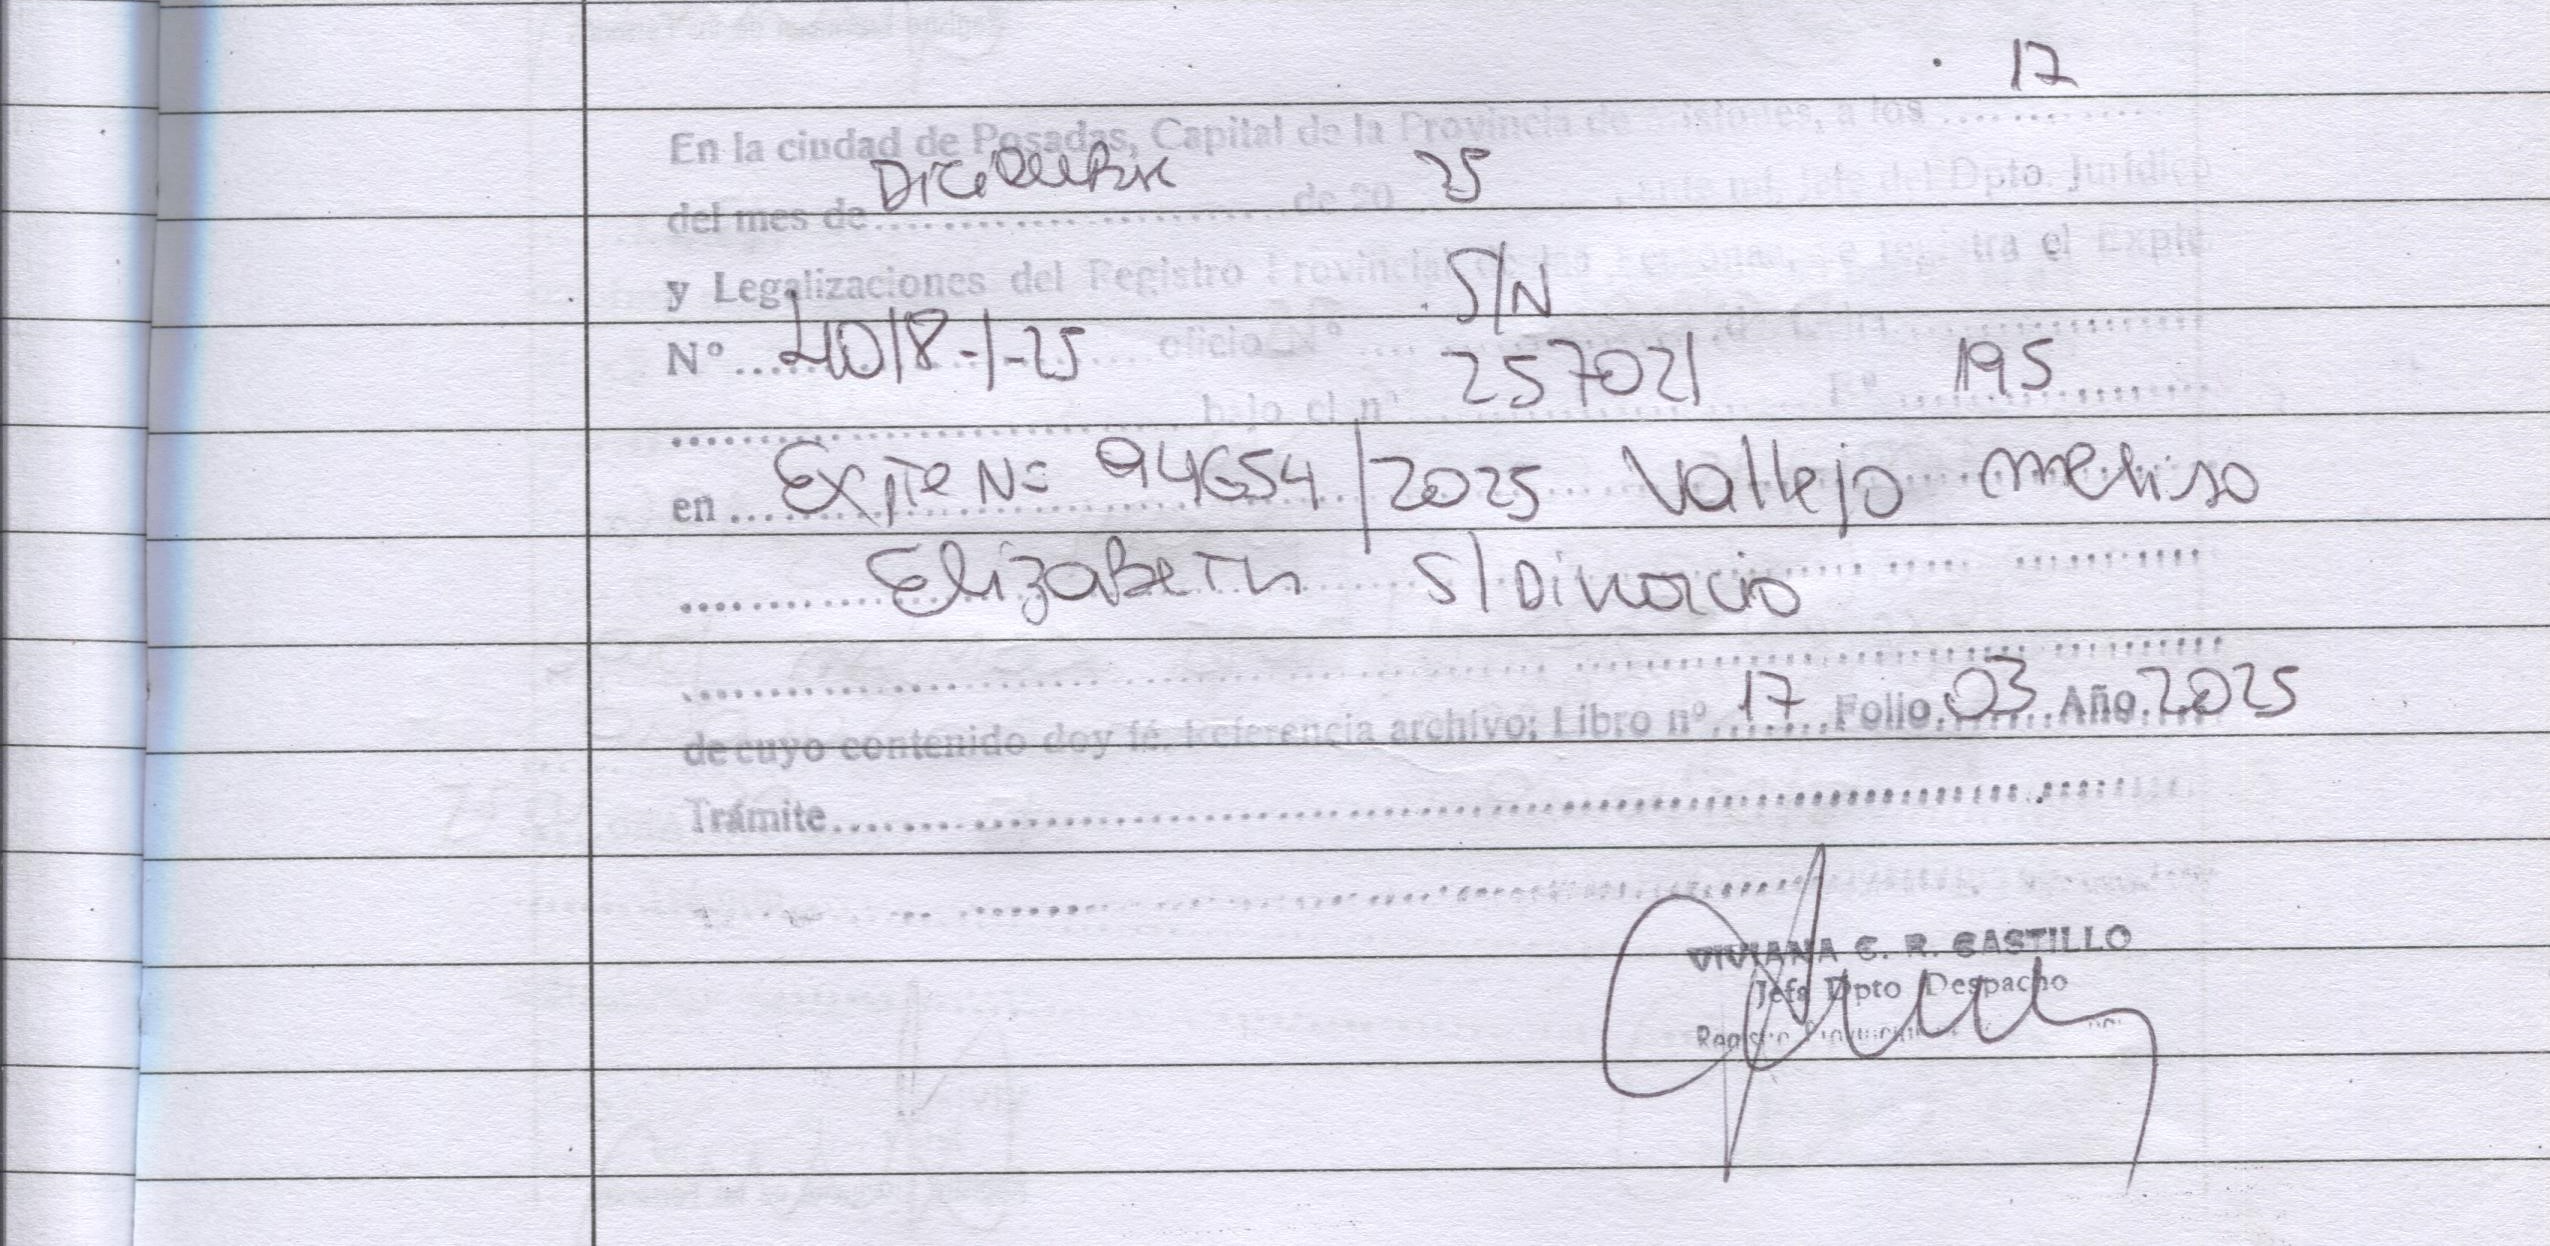 17
En la ciudad de Posadas, Capital de la Provincia de Misiones, a los ............
del mes de Diciembre de 20 25 del Dpto. Jurídico
y Legalizaciones del Registro Provincial de las Personas, se registra el Expte
N° 4018-1-25 oficio N° S/N
bajo el n° 257021 F° 195
en Expte N= 94654/2025 Vallejo Melisa
Elizabeth S/Divorcio
de cuyo contenido doy fé. Referencia archivo; Libro n° 17 Folio 03 Año 2025
Trámite
VIVIANA C. R. CASTILLO
Jefa Dpto Despacho
Registro Provincial